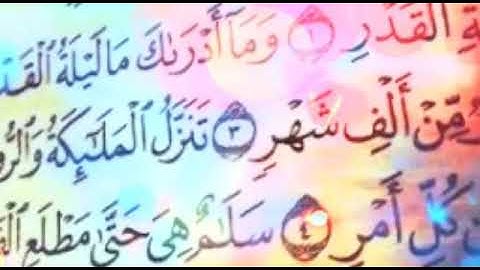 ةِ ٱلۡقَدۡرِ ١ وَمَآ أَدۡرَىٰكَ مَا لَيۡلَةُ ٱلۡقَدۡ
رٞ مِّنۡ أَلۡفِ شَهۡرٖ ٣ تَنَزَّلُ ٱلۡمَلَٰٓئِكَةُ وَٱلرُّو
ن كُلِّ أَمۡرٖ ٤ سَلَٰمٌ هِيَ حَتَّىٰ مَطۡلَعِ ٱلۡفَ